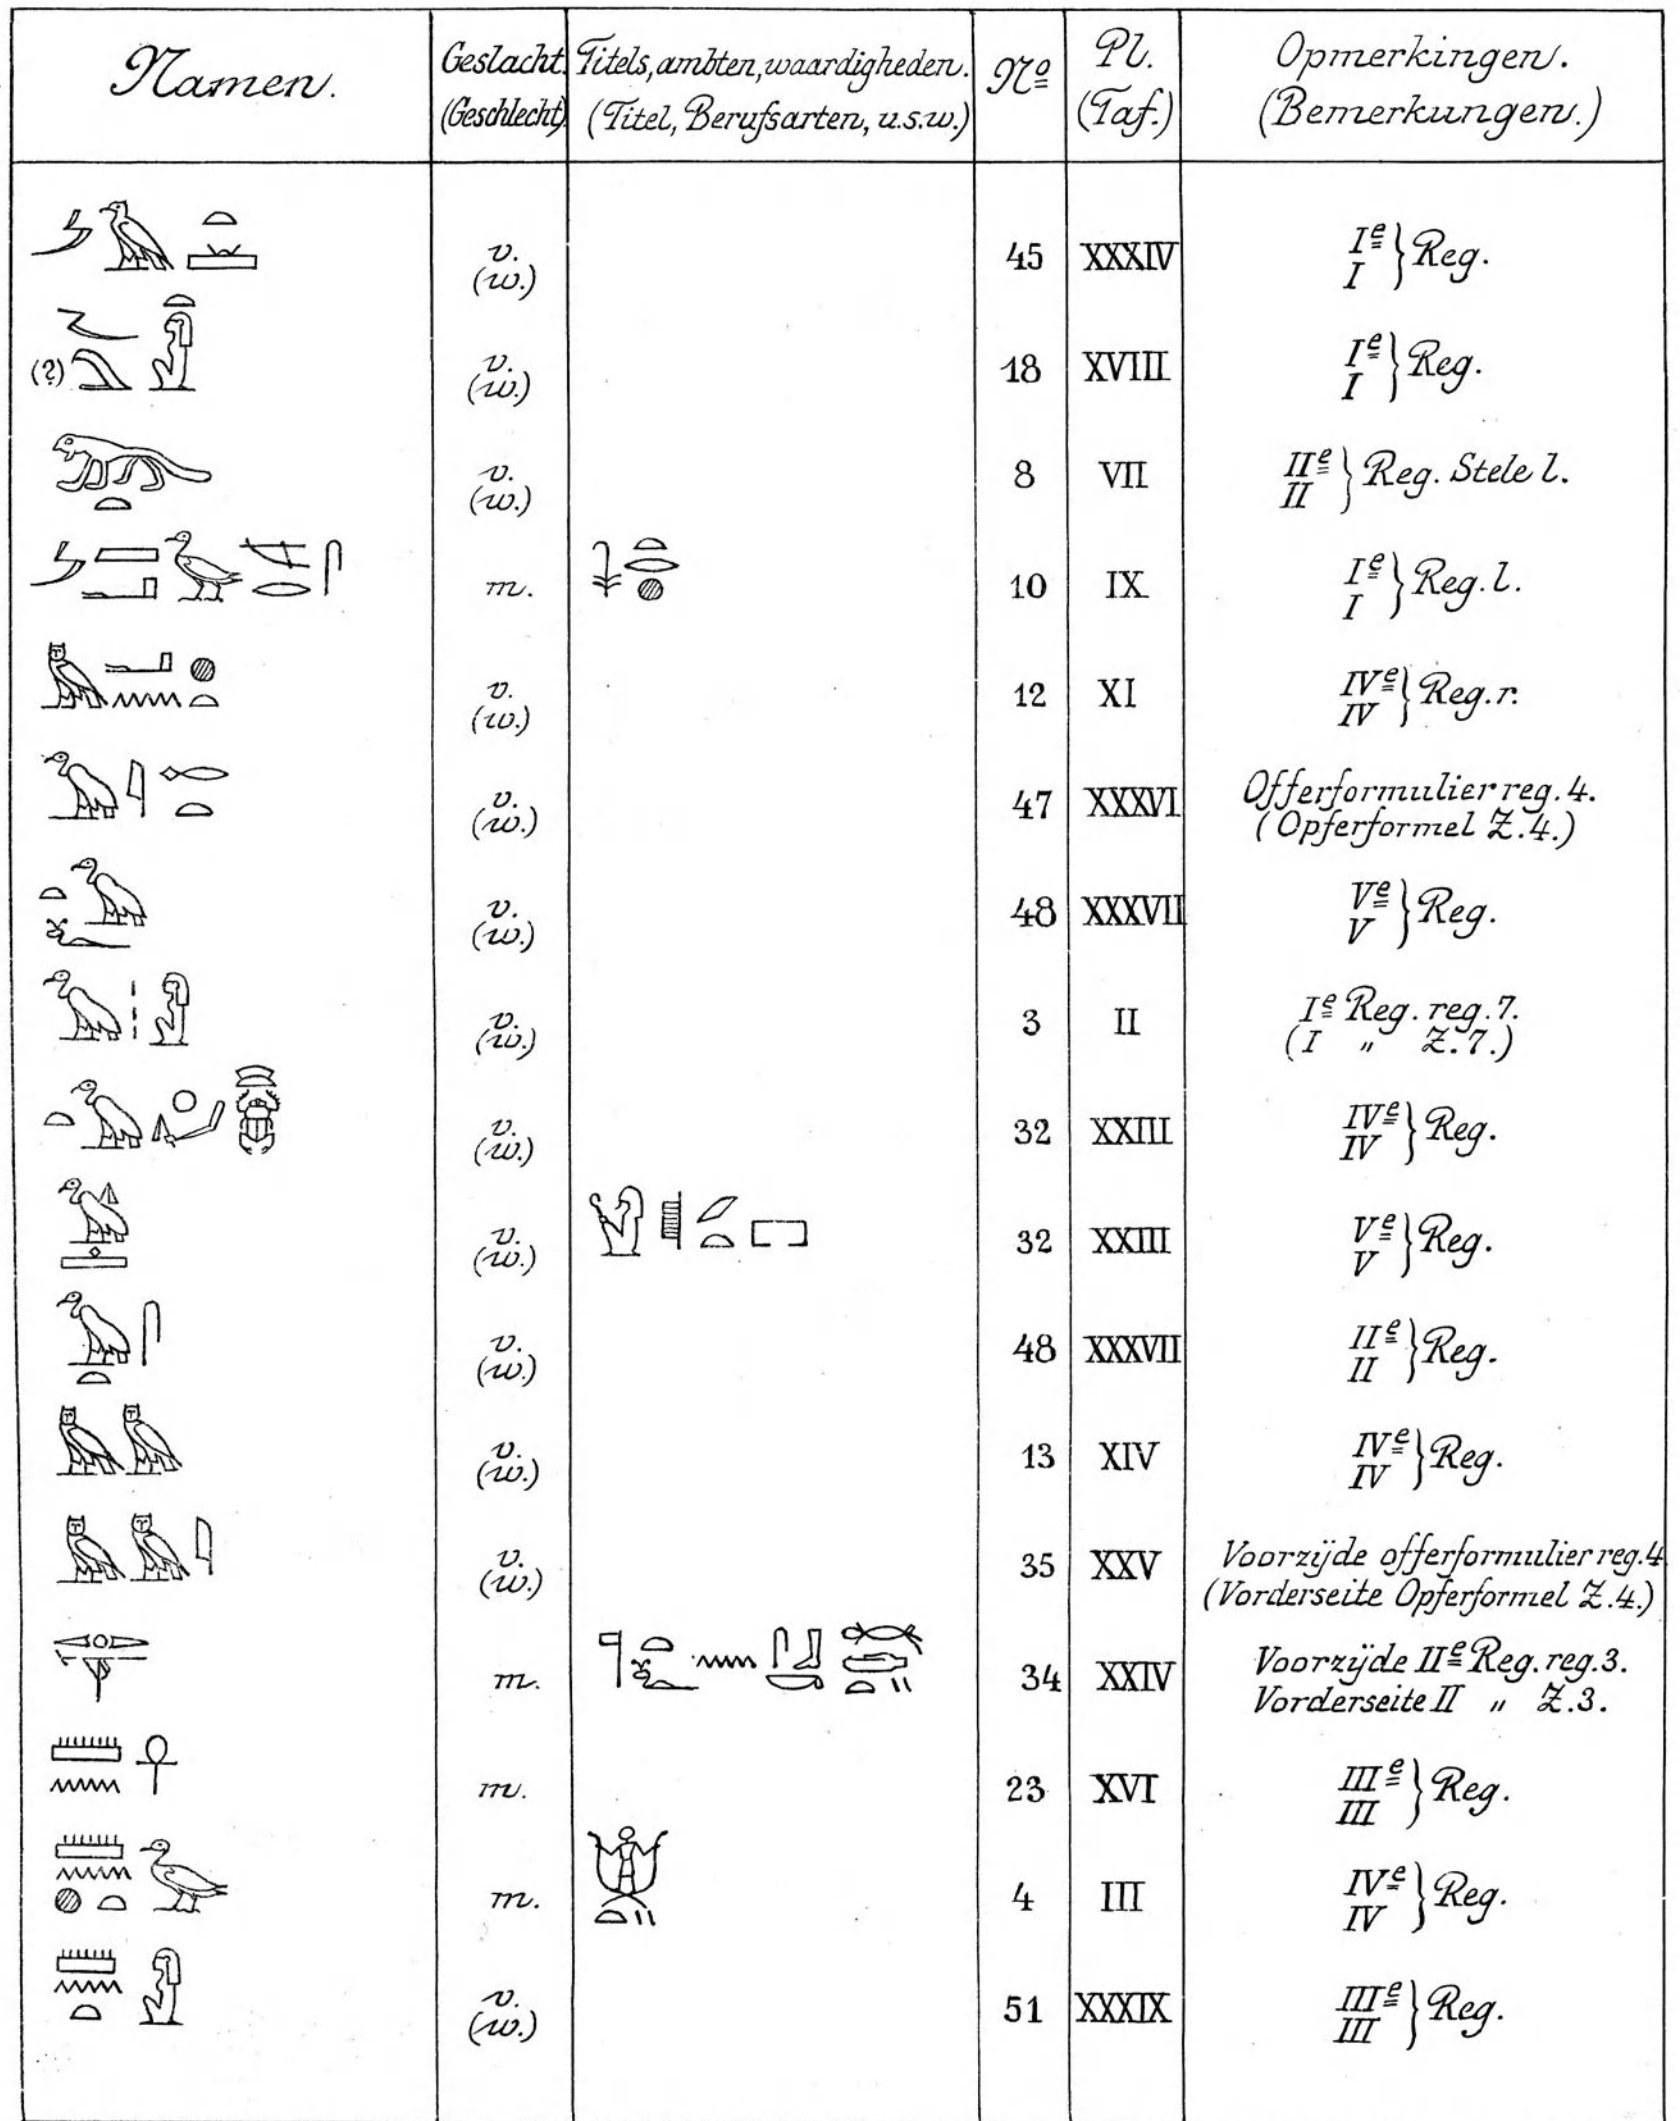 Namen.
Geslacht.
(Geschlecht)
Titels, ambten, waardigheden.
(Titel, Berufsarten, u.s.w.)
Nº
Pl.
(Taf.)
Opmerkingen.
(Bemerkungen.)
v.
(w.)
45 XXXIV
Iᵉ
I } Reg.
(?)
v.
(w.)
18 XVIII
Iᵉ
I } Reg.
v.
(w.)
8 VII
IIᵉ
II } Reg. Stele l.
𓇓𓏏𓂋𓐍
m.
10 IX
Iᵉ
I } Reg. l.
𓅓𓂝𓈖𓐍𓏏
v.
(w.)
12 XI
IVᵉ
IV } Reg. r.
v.
(w.)
47 XXXVI
Offerformulier reg. 4.
(Opferformel Z. 4.)
𓏏𓅐𓆑
v.
(w.)
48 XXXVII
Vᵉ
V } Reg.
v.
(w.)
3 II
Iᵉ Reg. reg. 7.
(I " Z. 7.)
v.
(w.)
32 XXIII
IVᵉ
IV } Reg.
v.
(w.)
32 XXIII
Vᵉ
V } Reg.
𓅐𓏏𓋴
v.
(w.)
48 XXXVII
IIᵉ
II } Reg.
𓅓𓅓
v.
(w.)
13 XIV
IVᵉ
IV } Reg.
𓅓𓅓𓇋
v.
(w.)
35 XXV
Voorzijde offerformulier reg. 4
(Vorderseite Opferformel Z. 4.)
m.
34 XXIV
Voorzijde IIᵉ Reg. reg. 3.
Vorderseite II " Z. 3.
𓏠𓈖𓋹
m.
23 XVI
IIIᵉ
III } Reg.
𓏠𓈖𓐍𓏏𓅭
m.
4 III
IVᵉ
IV } Reg.
𓏠𓈖𓏏𓁐
v.
(w.)
51 XXXIX
IIIᵉ
III } Reg.